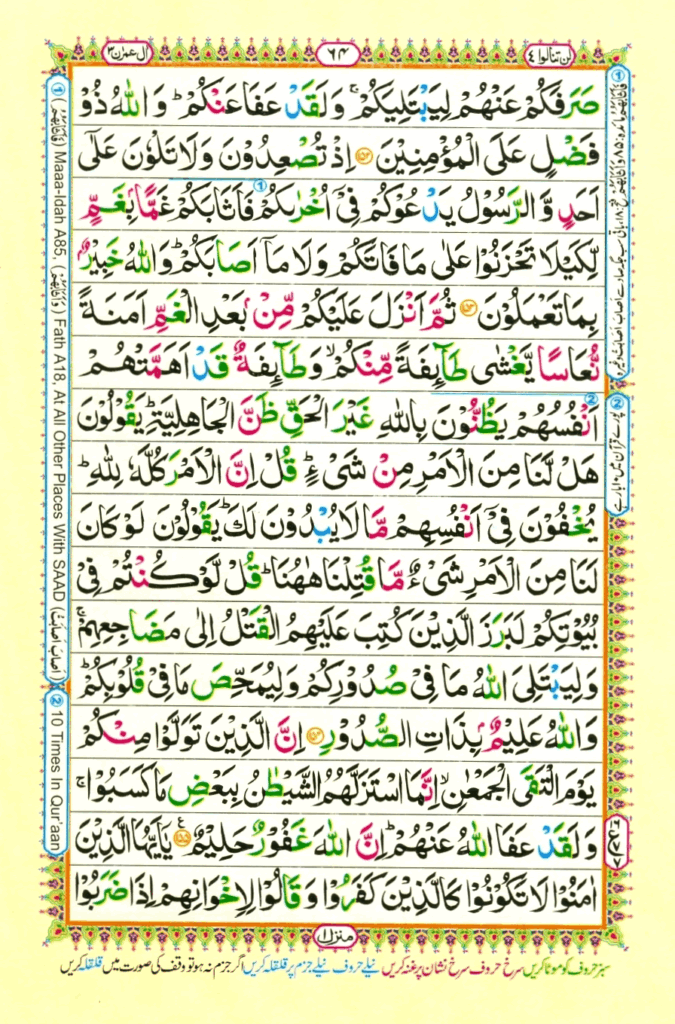 لن تنالوا ٤
٦٤
اٰل عمرٰن ٣
صَرَفَكُمْ عَنْهُمْ لِيَبْتَلِيَكُمْ ۚ وَلَقَدْ عَفَا عَنْكُمْ ؕ وَاللّٰهُ ذُوْ
فَضْلٍ عَلَى الْمُؤْمِنِيْنَ ﴿۱۵۲﴾ اِذْ تُصْعِدُوْنَ وَلَا تَلْوٗنَ عَلٰٓى
اَحَدٍ وَّالرَّسُوْلُ يَدْعُوْكُمْ فِیْۤ اُخْرٰىكُمْ فَاَثَابَكُمْ غَمًّۢا بِغَمٍّ
لِّكَيْلَا تَحْزَنُوْا عَلٰى مَا فَاتَكُمْ وَلَا مَاۤ اَصَابَكُمْ ؕ وَاللّٰهُ خَبِيْرٌۢ
بِمَا تَعْمَلُوْنَ ﴿۱۵۳﴾ ثُمَّ اَنْزَلَ عَلَيْكُمْ مِّنْۢ بَعْدِ الْغَمِّ اَمَنَةً
نُّعَاسًا يَّغْشٰى طَآئِفَةً مِّنْكُمْ ۙ وَطَآئِفَةٌ قَدْ اَهَمَّتْهُمْ
اَنْفُسُهُمْ يَظُنُّوْنَ بِاللّٰهِ غَيْرَ الْحَقِّ ظَنَّ الْجَاهِلِيَّةِ ؕ يَقُوْلُوْنَ
هَلْ لَّنَا مِنَ الْاَمْرِ مِنْ شَیْءٍ ؕ قُلْ اِنَّ الْاَمْرَ كُلَّهٗ لِلّٰهِ ؕ
يُخْفُوْنَ فِیْۤ اَنْفُسِهِمْ مَّا لَا يُبْدُوْنَ لَكَ ؕ يَقُوْلُوْنَ لَوْ كَانَ
لَنَا مِنَ الْاَمْرِ شَیْءٌ مَّا قُتِلْنَا هٰهُنَا ؕ قُلْ لَّوْ كُنْتُمْ فِیْ
بُيُوْتِكُمْ لَبَرَزَ الَّذِيْنَ كُتِبَ عَلَيْهِمُ الْقَتْلُ اِلٰى مَضَاجِعِهِمْ ۚ
وَلِيَبْتَلِیَ اللّٰهُ مَا فِیْ صُدُوْرِكُمْ وَلِيُمَحِّصَ مَا فِیْ قُلُوْبِكُمْ ؕ
وَاللّٰهُ عَلِيْمٌۢ بِذَاتِ الصُّدُوْرِ ﴿۱۵۴﴾ اِنَّ الَّذِيْنَ تَوَلَّوْا مِنْكُمْ
يَوْمَ الْتَقَى الْجَمْعٰنِ ۙ اِنَّمَا اسْتَزَلَّهُمُ الشَّيْطٰنُ بِبَعْضِ مَا كَسَبُوْا ۚ
وَلَقَدْ عَفَا اللّٰهُ عَنْهُمْ ؕ اِنَّ اللّٰهَ غَفُوْرٌ حَلِيْمٌ ﴿۱۵۵﴾ يٰۤاَيُّهَا الَّذِيْنَ
اٰمَنُوْا لَا تَكُوْنُوْا كَالَّذِيْنَ كَفَرُوْا وَقَالُوْا لِاِخْوَانِهِمْ اِذَا ضَرَبُوْا
منزل ١
سبز حروف کو موٹا کریں سرخ حروف سرخ نشان پر غنہ کریں نیلے حروف نیلے جزم پر قلقلہ کریں اگر جزم نہ ہو تو وقف کی صورت میں قلقلہ کریں
① (فَاَثَابَهُمُ) Maaa-Idah A85, (وَاَثَابَهُمْ) Fath A18, At All Other Places With SAAD (اَصَابَ اَصَابَتْ)
② 10 Times In Qur'aan
② پورے قرآن میں ١٠ بار ہے